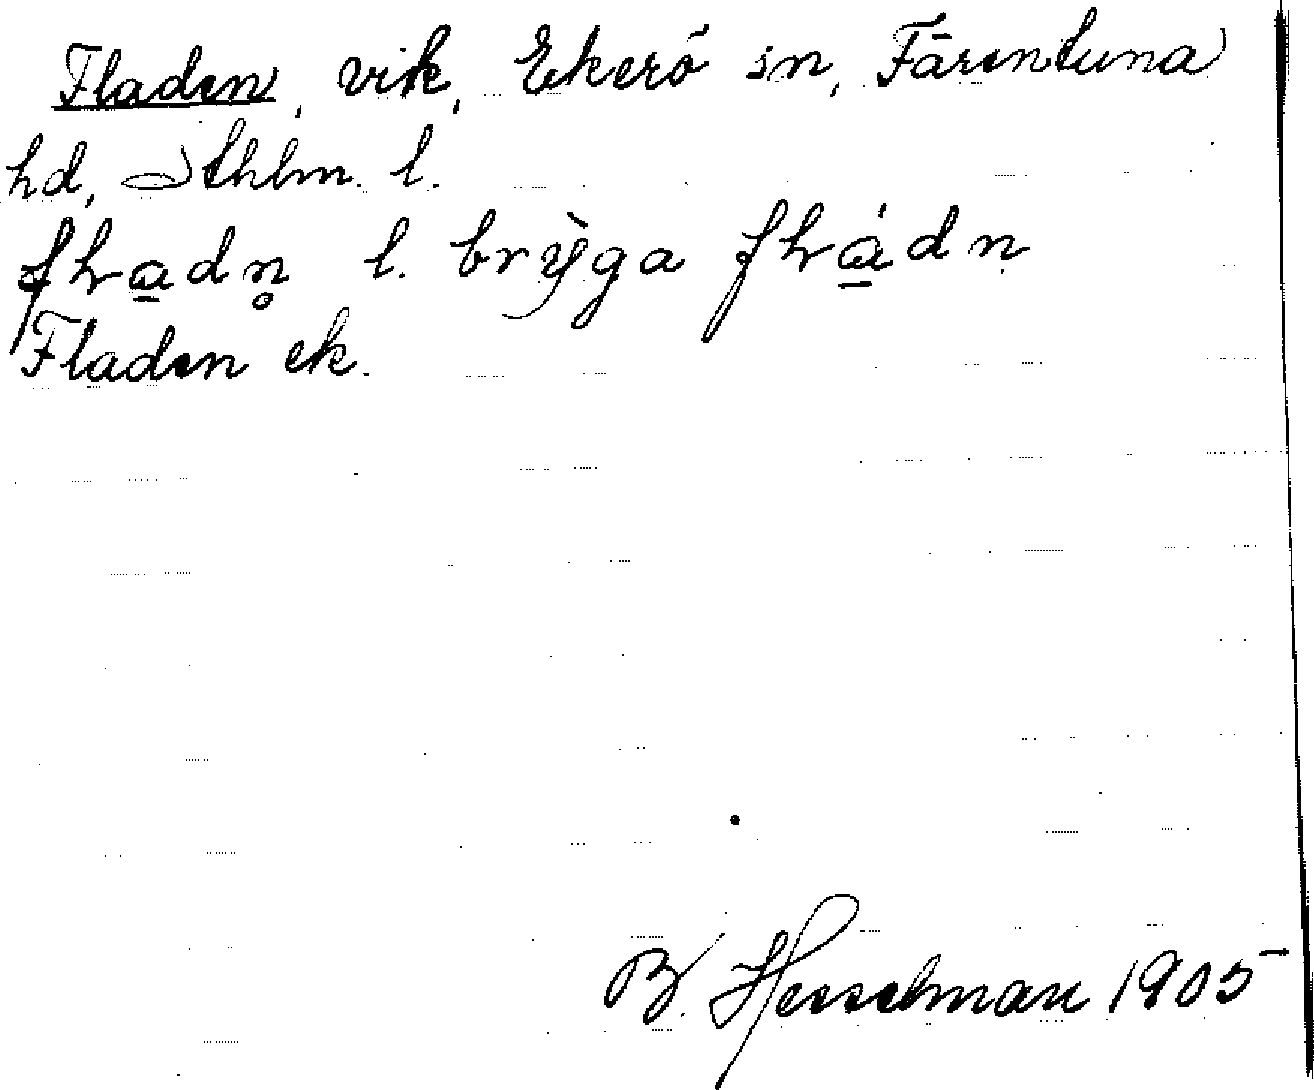 Fladen, vik, Ekerö sn, Färentuna
hd, Sthlm. l.
fɽa̲dn̥ l. brỳga fɽá̲dṇ
Fladen ek.
B. Hesselman 1905